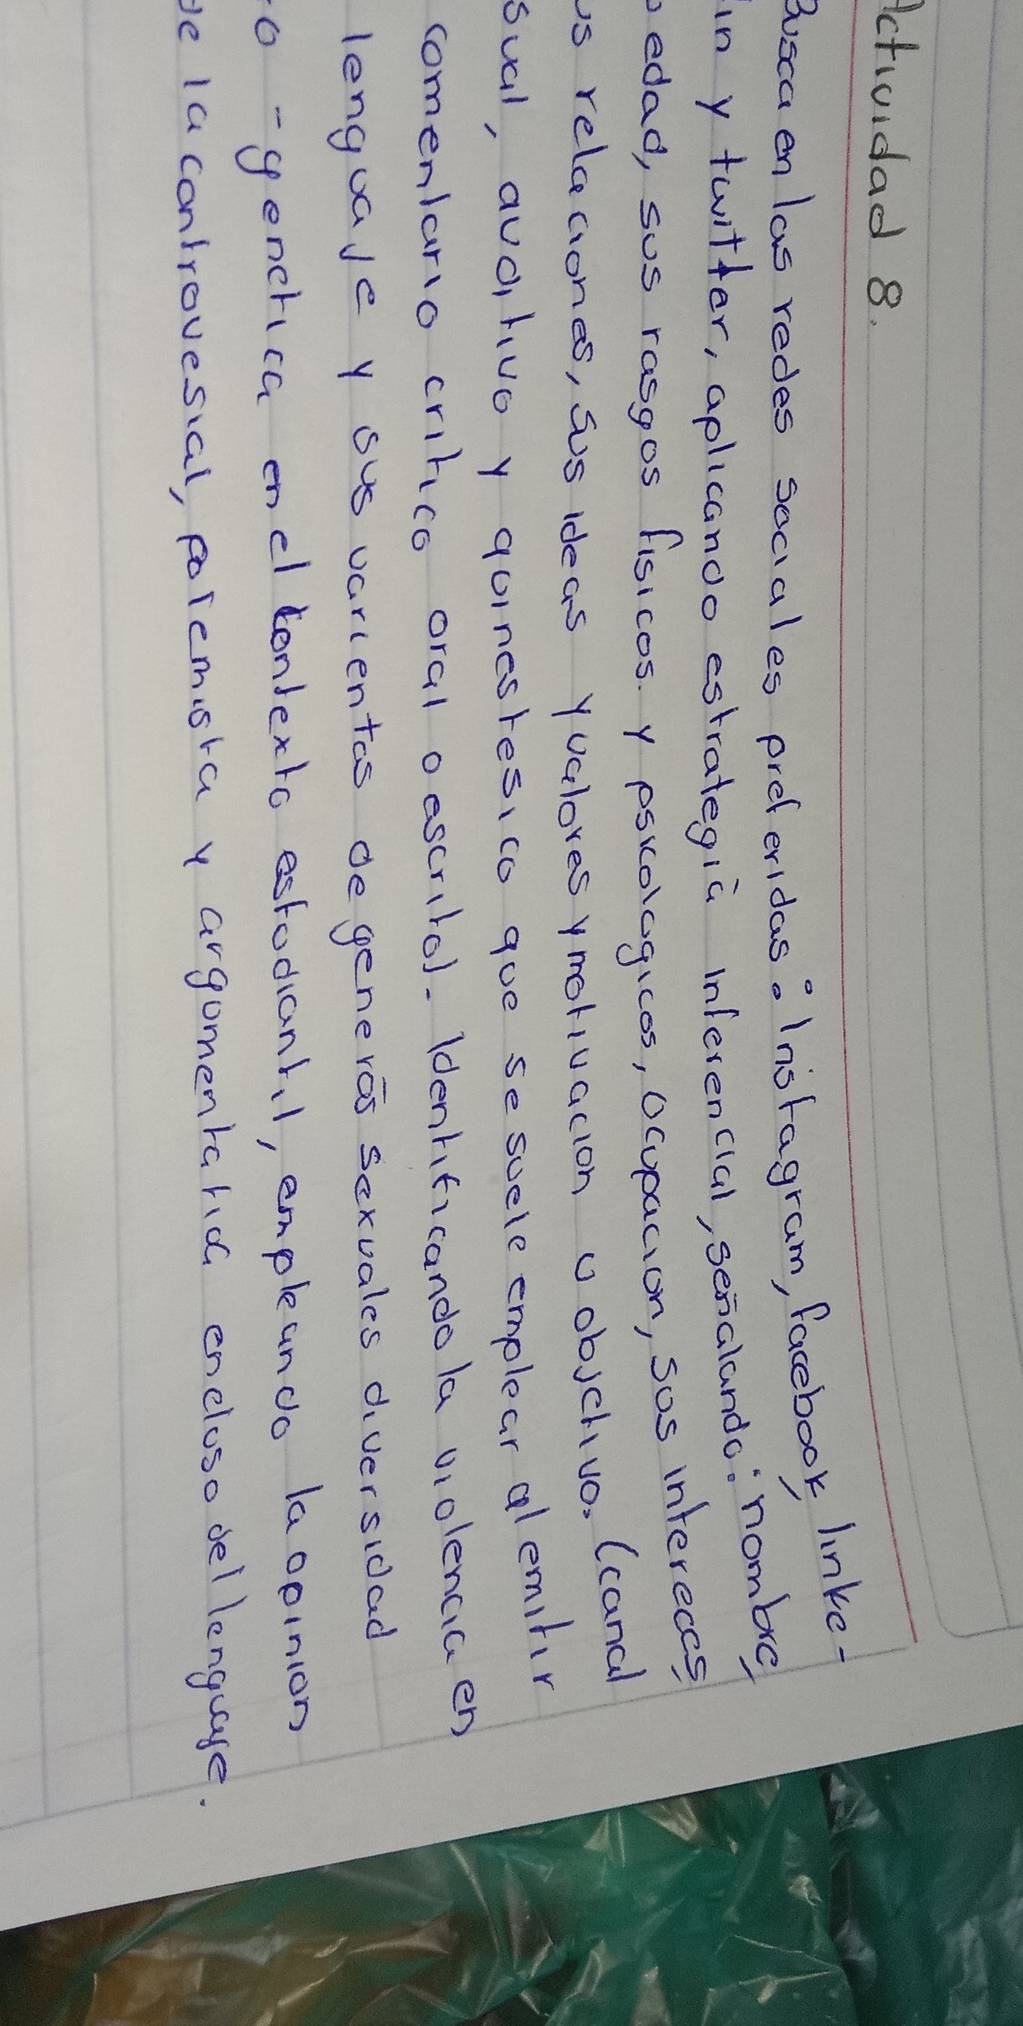 Actividad 8.
Busca en las redes sociales preferidas: Instagram, facebook, linke-
in y twitter, aplicando estrategia inferencial, señalando: nombre,
edad, sus rasgos fisicos. y psicologicos, Ocupacion, sus intereces
us relaciones, sus ideas y valores y motivacion u objetivo. (canal
sual, auditivo y quinestesico que se suele emplear al emitir
comentario critico oral o escrito). Identificando la violencia en
lenguaje y sus varientas de generos sexuales diversidad
o - genetica en el contexto estudiantil, empleando la opinion
de la controvesial, polemista y argumentatia en eluso del lenguaje.